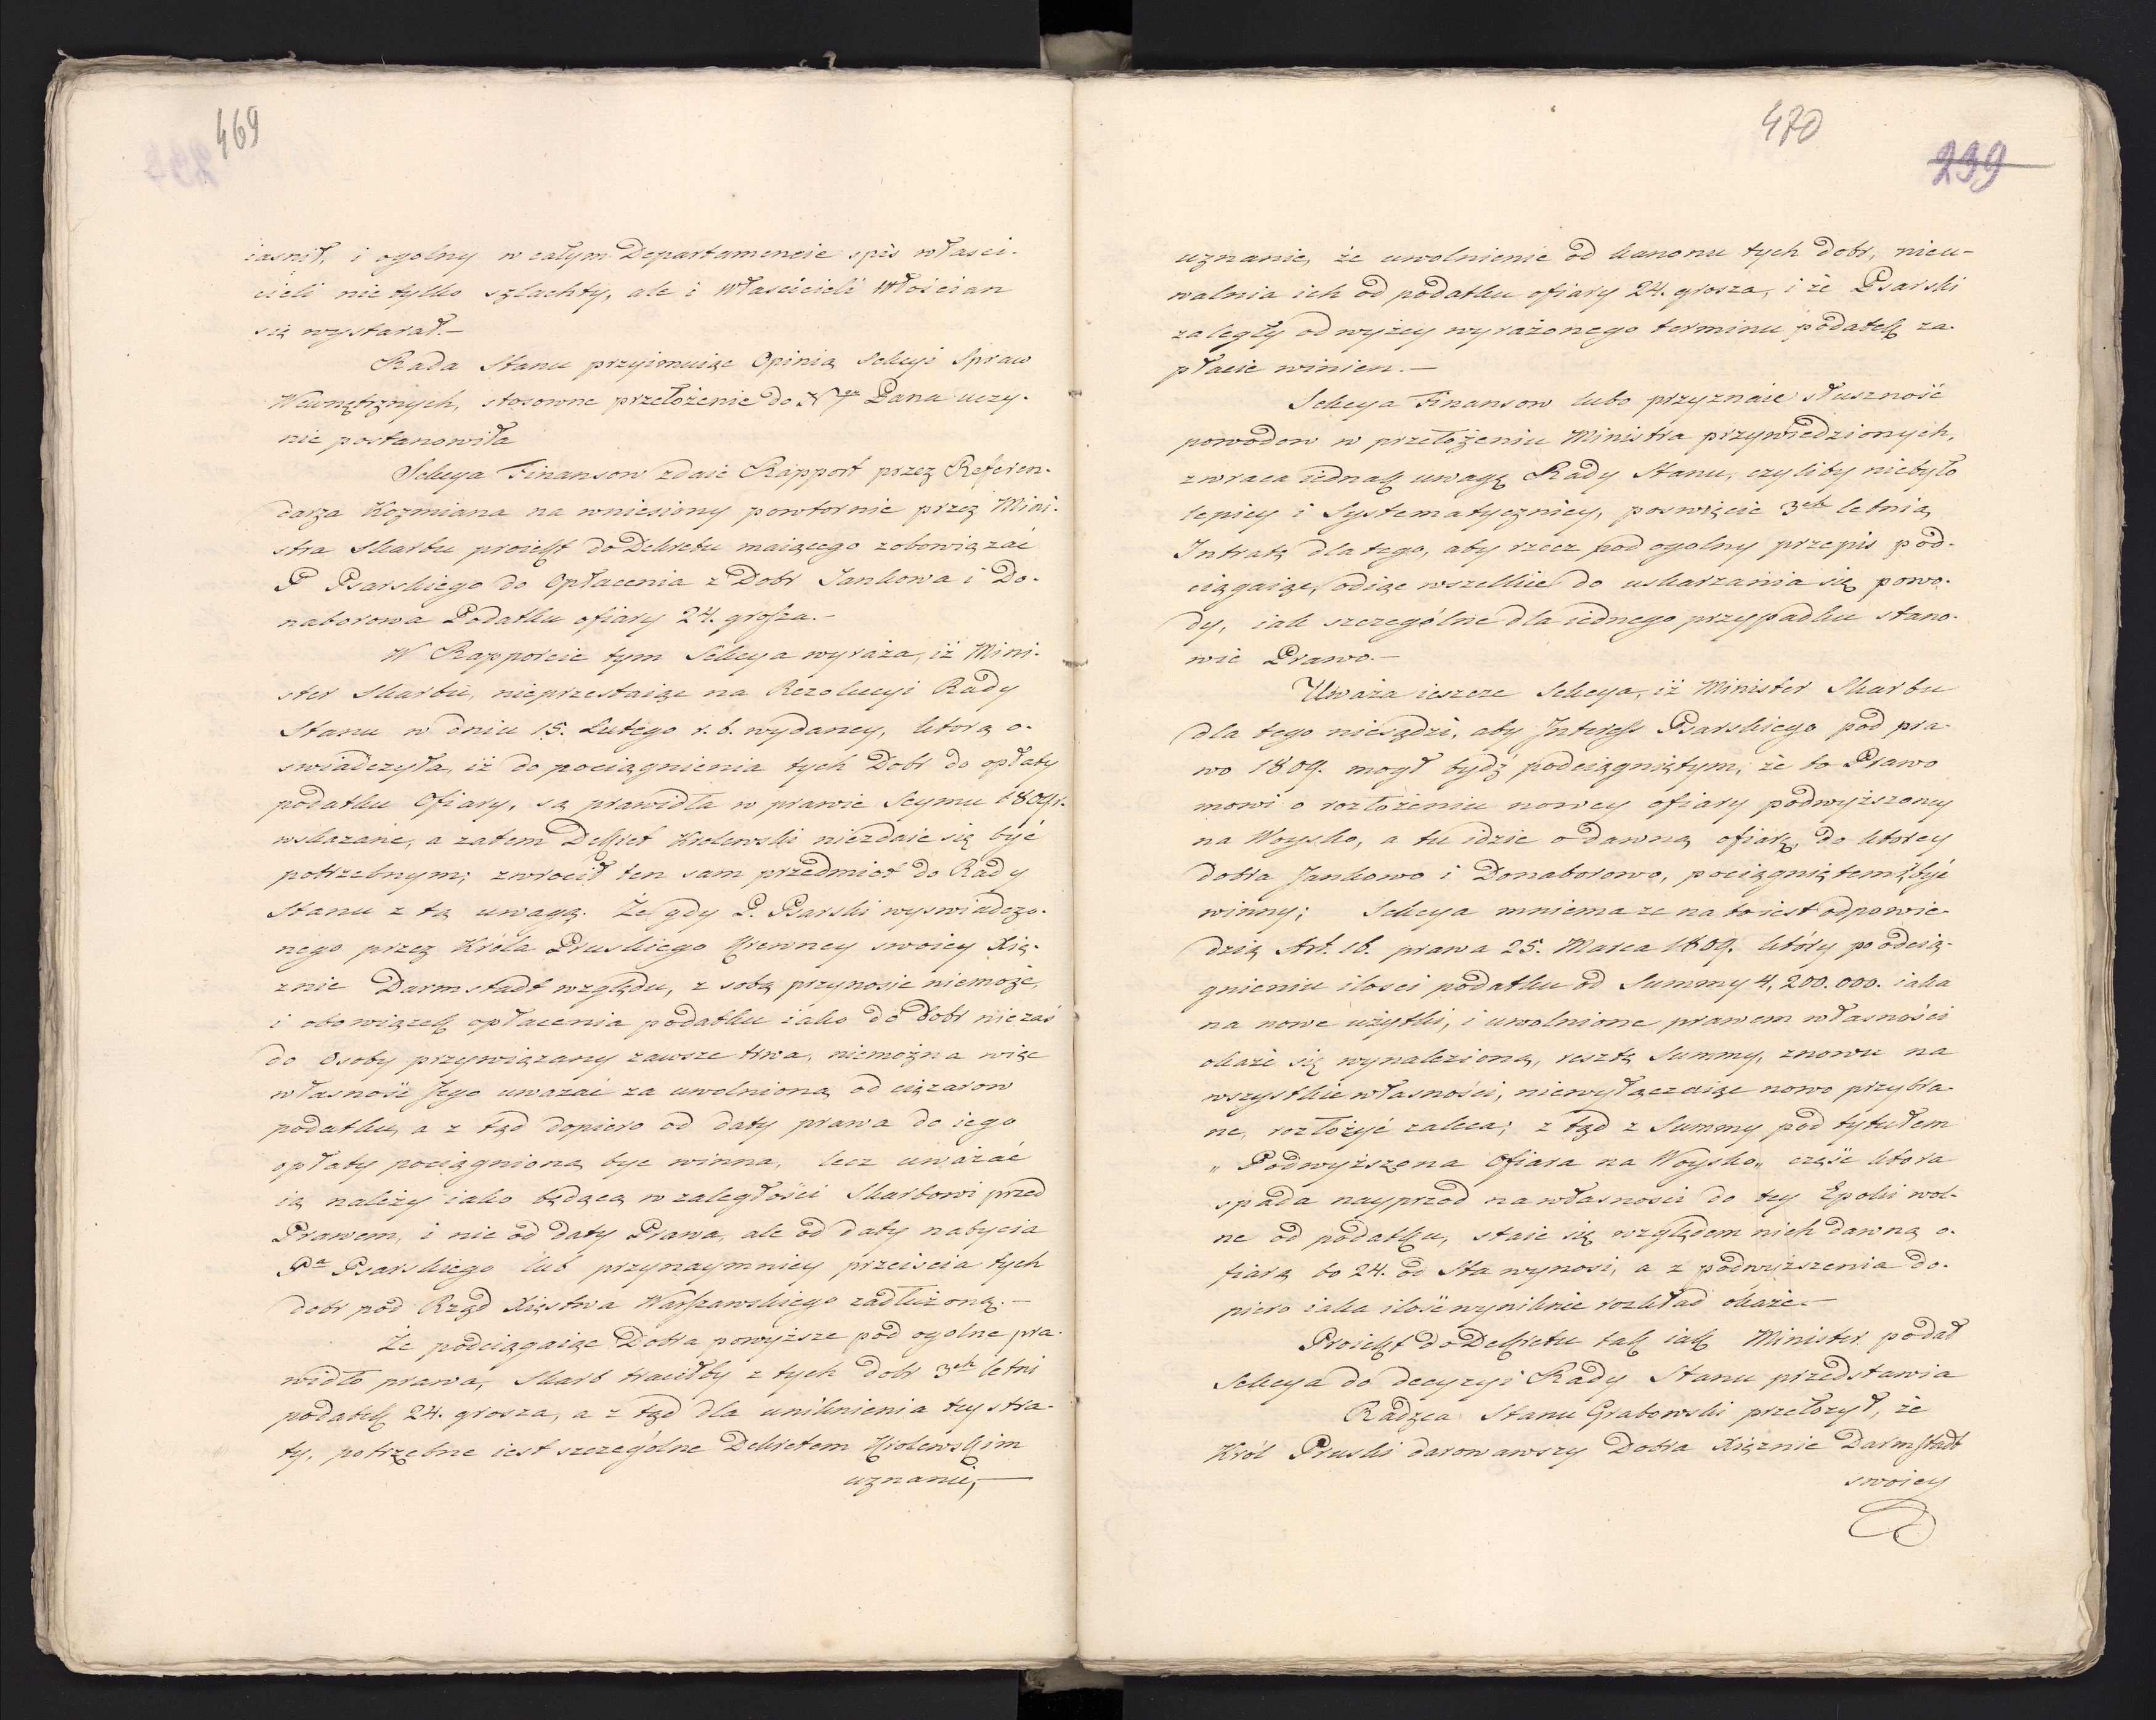 469
iasnił, i ogolny w całym Departamencie spis własci-
cieli nie tylko szlachty, ale i Właścicieli Włościan
się wystarał.-
Rada Stanu przyimuiąc Opinią Sekcyi Spraw
Wewnętrznych, stosowne przełożenie do N Pana uczy-
nić postanowiła
Sekcya Finansow zdaie Rapport przez Referen-
darza Kozmiana na wniesiony powtornie przez Mini-
stra Skarbu proiekt do Dekretu maiącego zobowiązać
P Psarskiego do Opłacenia z Dobr Jankowa i Do-
naborowa Podatku ofiary 24. grosza.-
W Rapporcie tym Sekcya wyraża, iż Mini-
ster Skarbu, nieprzestaiąc na Rezolucyi Rady
Stanu w dniu 15. Lutego r. b. wydaney, ktorą o-
swiadczyła, iż do pociągnienia tych Dobr do opłaty
podatku Ofiary, są prawidła w prawie Seymu 1809 r.
wskazane, a zatem Dekret Krolewski niezdaie się być
potrzebnym; zwrocił ten sam przedmiot do Rady
Stanu z tą uwagą. Że gdy P. Psarski wyswiadczo-
nego przez Króla Pruskiego Krewney swoiey Xię-
żnie Darmstadt względu, z sobą przynosić niemoże,
i obowiązek opłacenia podatku iako do Dobr nie zaś
do Osoby przywiązany zawsze trwa, niemożna więc
własność Jego uważać za uwolnioną od ciężarow
podatku, a z tąd dopiero od daty prawa do iego
opłaty pociągnioną byc winna, lecz uważać
ią należy iako będącą w zaległości Skarbowi przed
Prawem, i nie od daty Prawa, ale od daty nabycia
Pa Psarskiego lub przynaymniey przeiścia tych
dobr pod Rząd Xięstwa Warszawskiego zadłużoną.-
Że podciągaiąc Dobra powyższe pod ogolne pra-
widło prawa, Skarb traciłby z tych dobr 3ch letni
podatek 24. grosza, a z tąd dla uniknienia tey stra-
ty, potrzebne iest szczególne Dekretem Krolewskim
uznanie,-
470
239
uznanie, że uwolnienie od kanonu tych dobr, nieu-
walnia ich od podatku ofiary 24. grosza, i że Psarski
zaległy od wyżey wyrażonego terminu podatek za-
płacić winien.-
Sekcya Finansow lubo przyznaie słuszność
powodow w przełożeniu Ministra przywiedzionych,
zwraca iednak uwagę Rady Stanu, czyliby niebyło
lepiey i Systematyczniey, poswięcić 3ch letnią
Intratę dla tego, aby rzecz pod ogolny przepis pod-
ciągaiąc, odiąć wszelkie do uskarzania się powo-
dy, iak szczególne dla iednego przypadku stano-
wić Prawo.-
Uważa ieszcze Sekcya, iż Minister Skarbu
dla tego niesądzi, aby Interess Psarskiego pod pra-
wo 1809. mogł bydź podciągniętym, że to Prawo
mowi o rozłożeniu nowey ofiary podwyższoney
na Woysko, a tu idzie o dawną ofiarę, do ktorey
dobra Jankowo i Donaborowo, pociągniętemi być
winny; Sekcya mniema ze na to iest odpowie-
dzią Art. 16. prawa 25. Marca 1809. ktòry po odcią-
gnieniu ilosci podatku od Summy 4,200.000. iaka
na nowe użytki, i uwolnione prawem własności
okaże się wynalezioną, resztę Summy, znowu na
wszystkie własności, niewyłączaiąc nowo przybra-
ne, rozłożyć zaleca; z tąd z Summy pod tytułem
„ Podwyższona Ofiara na Woysko„ część ktora
spada nayprzod na własności do tey Epoki wol-
ne od podatku, staie się względem nich dawną o-
fiarą to 24. od Sta wynosi, a z podwyższenia do-
piero iaka ilość wyniknie rozkład okaże.-
Proiekt do Dekretu tak iak Minister podał
Sekcya do decyzyi Rady Stanu przedstawia
Radzca Stanu Grabowski przełożył, że
Król Pruski darowawszy Dobra Xiężnie Darmstadt
swoiey